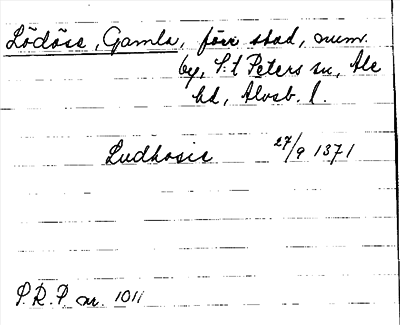 Lödöse, Gamla, förr stad, num.
by, S:t Peters sn, Ale
hd, Älvsb. l.
Ludhosie 27/9 1371
P.R.P. nr. 1011